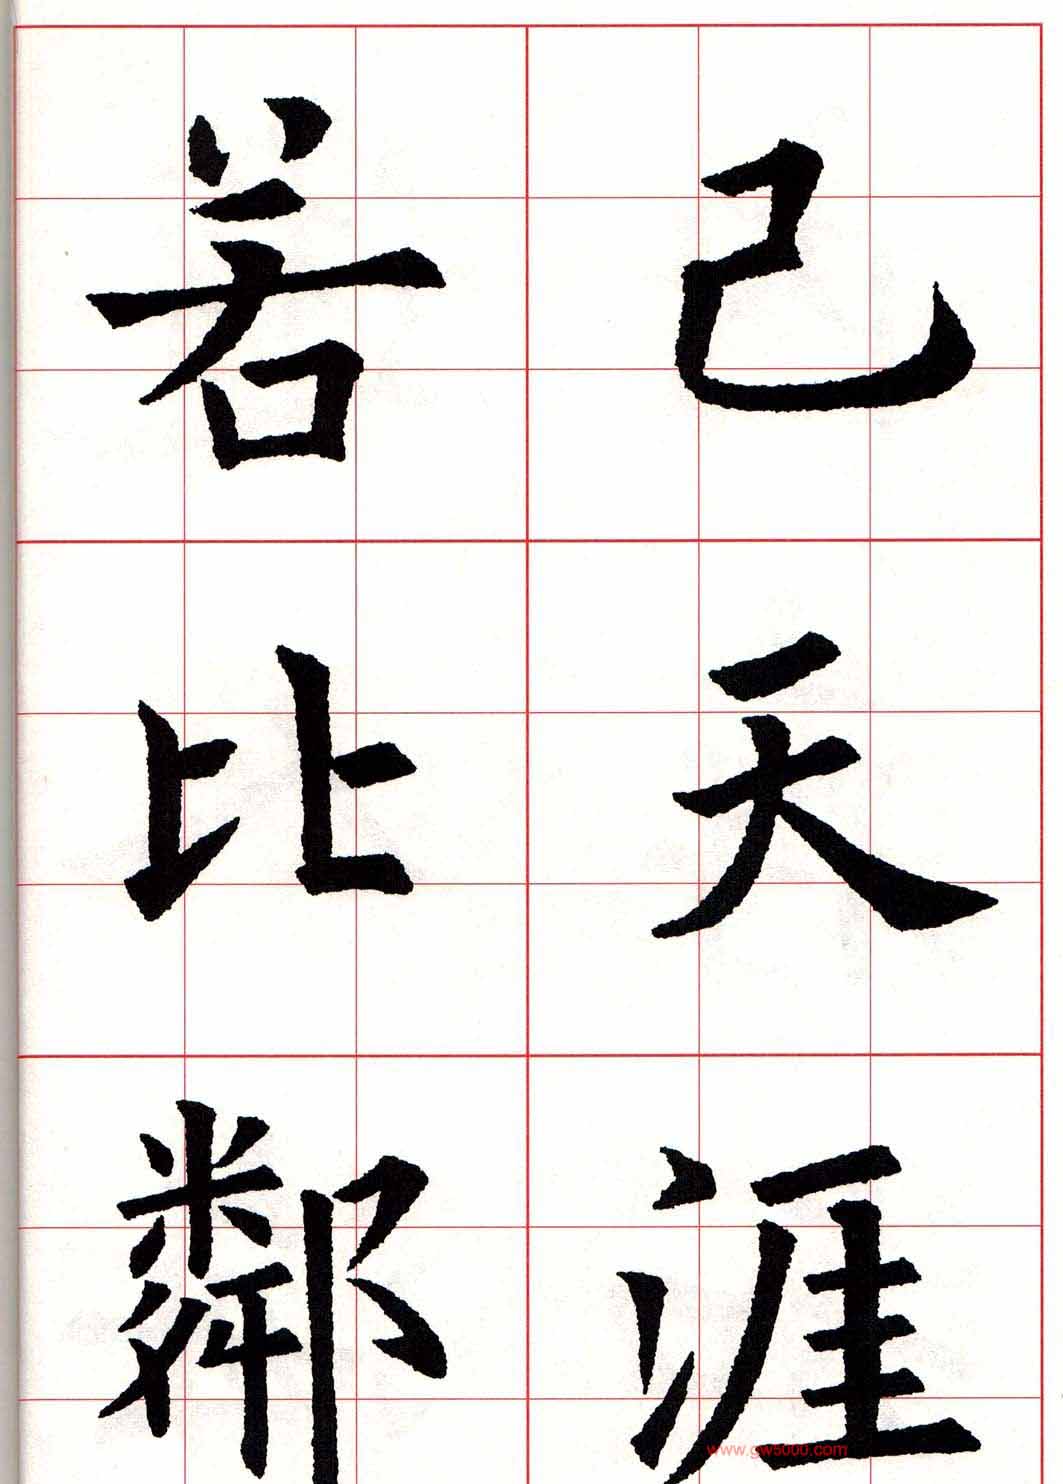 己天涯
若比鄰
www.gw5000.com